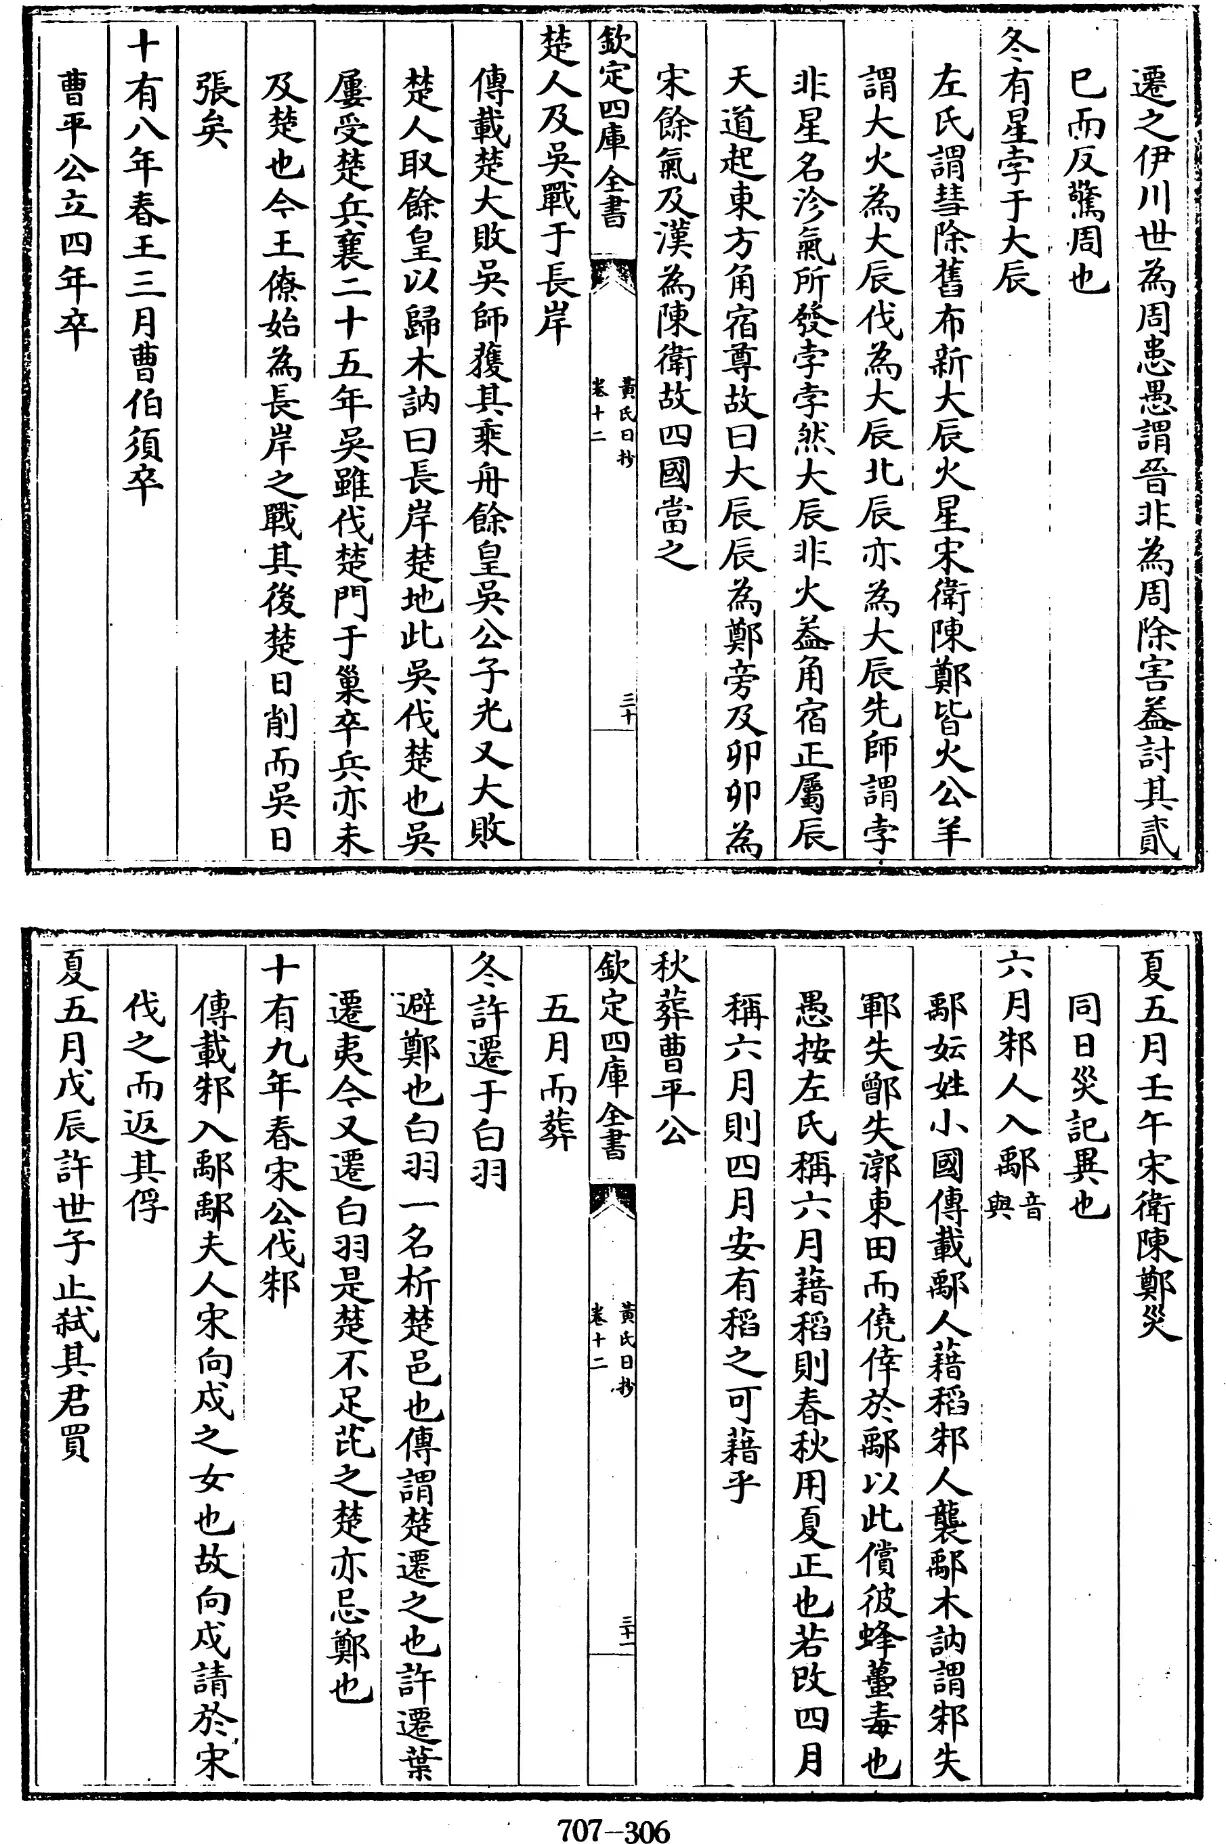 遷之伊川世為周患愚謂晉非為周除害葢討其貳
已而反驚周也
冬有星孛于大辰
左氏謂彗除舊布新大辰火星宋衛陳鄭皆火公羊
謂大火為大辰伐為大辰北辰亦為大辰先師謂孛
非星名沴氣所發孛孛然大辰非火葢角宿正屬辰
天道起東方角宿尊故曰大辰辰為鄭旁及卯卯為
宋餘氣及漢為陳衛故四國當之
欽定四庫全書
黃氏日抄
卷十二
三十
楚人及吳戰于長岸
傳載楚大敗吳師獲其乘舟餘皇吳公子光又大敗
楚人取餘皇以歸木訥曰長岸楚地此吳伐楚也吳
屢受楚兵襄二十五年吳雖伐楚門于巢卒兵亦未
及楚也今王僚始為長岸之戰其後楚日削而吳日
張矣
十有八年春王三月曹伯須卒
曹平公立四年卒
夏五月壬午宋衛陳鄭災
同日災記異也
六月邾人入鄅音與
鄅妘姓小國傳載鄅人藉稻邾人襲鄅木訥謂邾失
鄆失鄫失漷東田而僥倖於鄅以此償彼蜂蠆毒也
愚按左氏稱六月藉稻則春秋用夏正也若改四月
稱六月則四月安有稻之可藉乎
秋葬曹平公
欽定四庫全書
黃氏日抄
卷十二
三十一
五月而葬
冬許遷于白羽
避鄭也白羽一名析楚邑也傳謂楚遷之也許遷葉
遷夷今又遷白羽是楚不足芘之楚亦忌鄭也
十有九年春宋公伐邾
傳載邾入鄅鄅夫人宋向戍之女也故向戍請於宋
伐之而返其俘
夏五月戊辰許世子止弑其君買
707-306